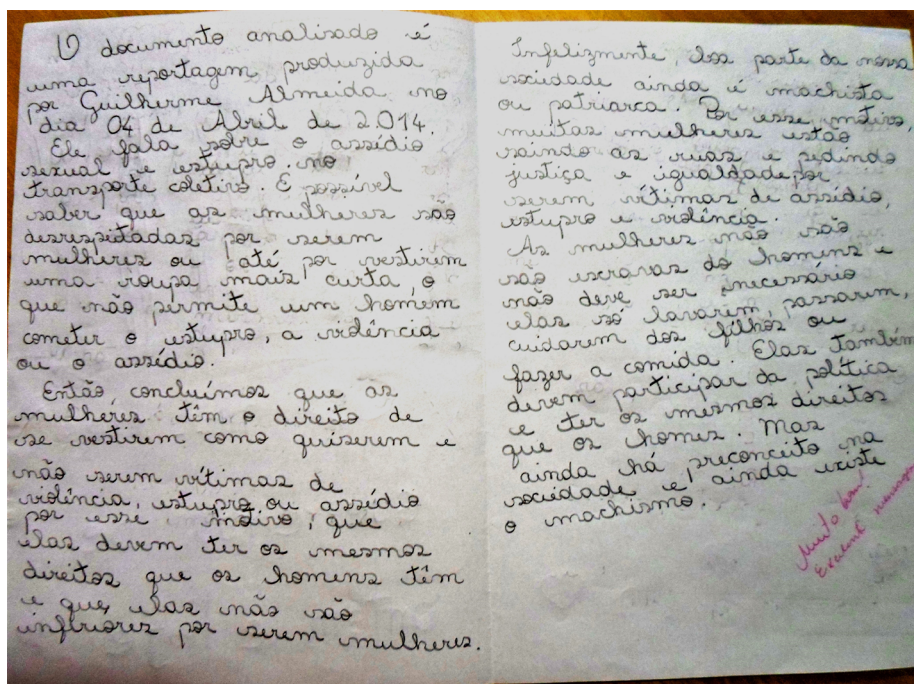 O documento analisado é
uma reportagem produzida
por Guilherme Almeida no
dia 04 de Abril de 2.014.
Ele fala sobre o assédio
sexual e estupro no
transporte coletivo. É possível
saber que as mulheres são
desrespeitadas por serem
mulheres ou até por vestirem
uma roupa mais curta, o
que não permite um homem
cometer o estupro, a violência
ou o assédio.
Então concluímos que as
mulheres têm o direito de
se vestirem como quiserem e
não serem vítimas de
violência, estupro ou assédio
por esse motivo, que
elas devem ter os mesmos
direitos que os homens têm
e que elas não são
inferiores por serem mulheres.
Infelizmente, boa parte da nossa
sociedade ainda é machista
ou patriarca. Por esse motivo,
muitas mulheres estão
saindo as ruas e pedindo
justiça e igualdade por
serem vítimas de assédio,
estupro e violência.
As mulheres não são
são escravas do homens e
não deve ser necessário
elas só lavarem, passarem,
cuidarem dos filhos ou
fazer a comida. Elas também
devem participar da política
e ter os mesmos direitos
que os homes. Mas
ainda há preconceito na
sociedade e ainda existe
o machismo.
Muito bom!